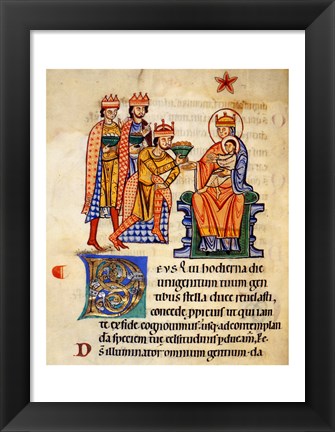 DEUS QUI hodierna die
unigenitum tuum gen
tibus stella duce reuelasti,
concede ppicius ut qui iam
te ex fide cognouimus, usq; ad contemplan
dā speciem tue celsitudinis pducam,
D illuminator omnium gentium. da